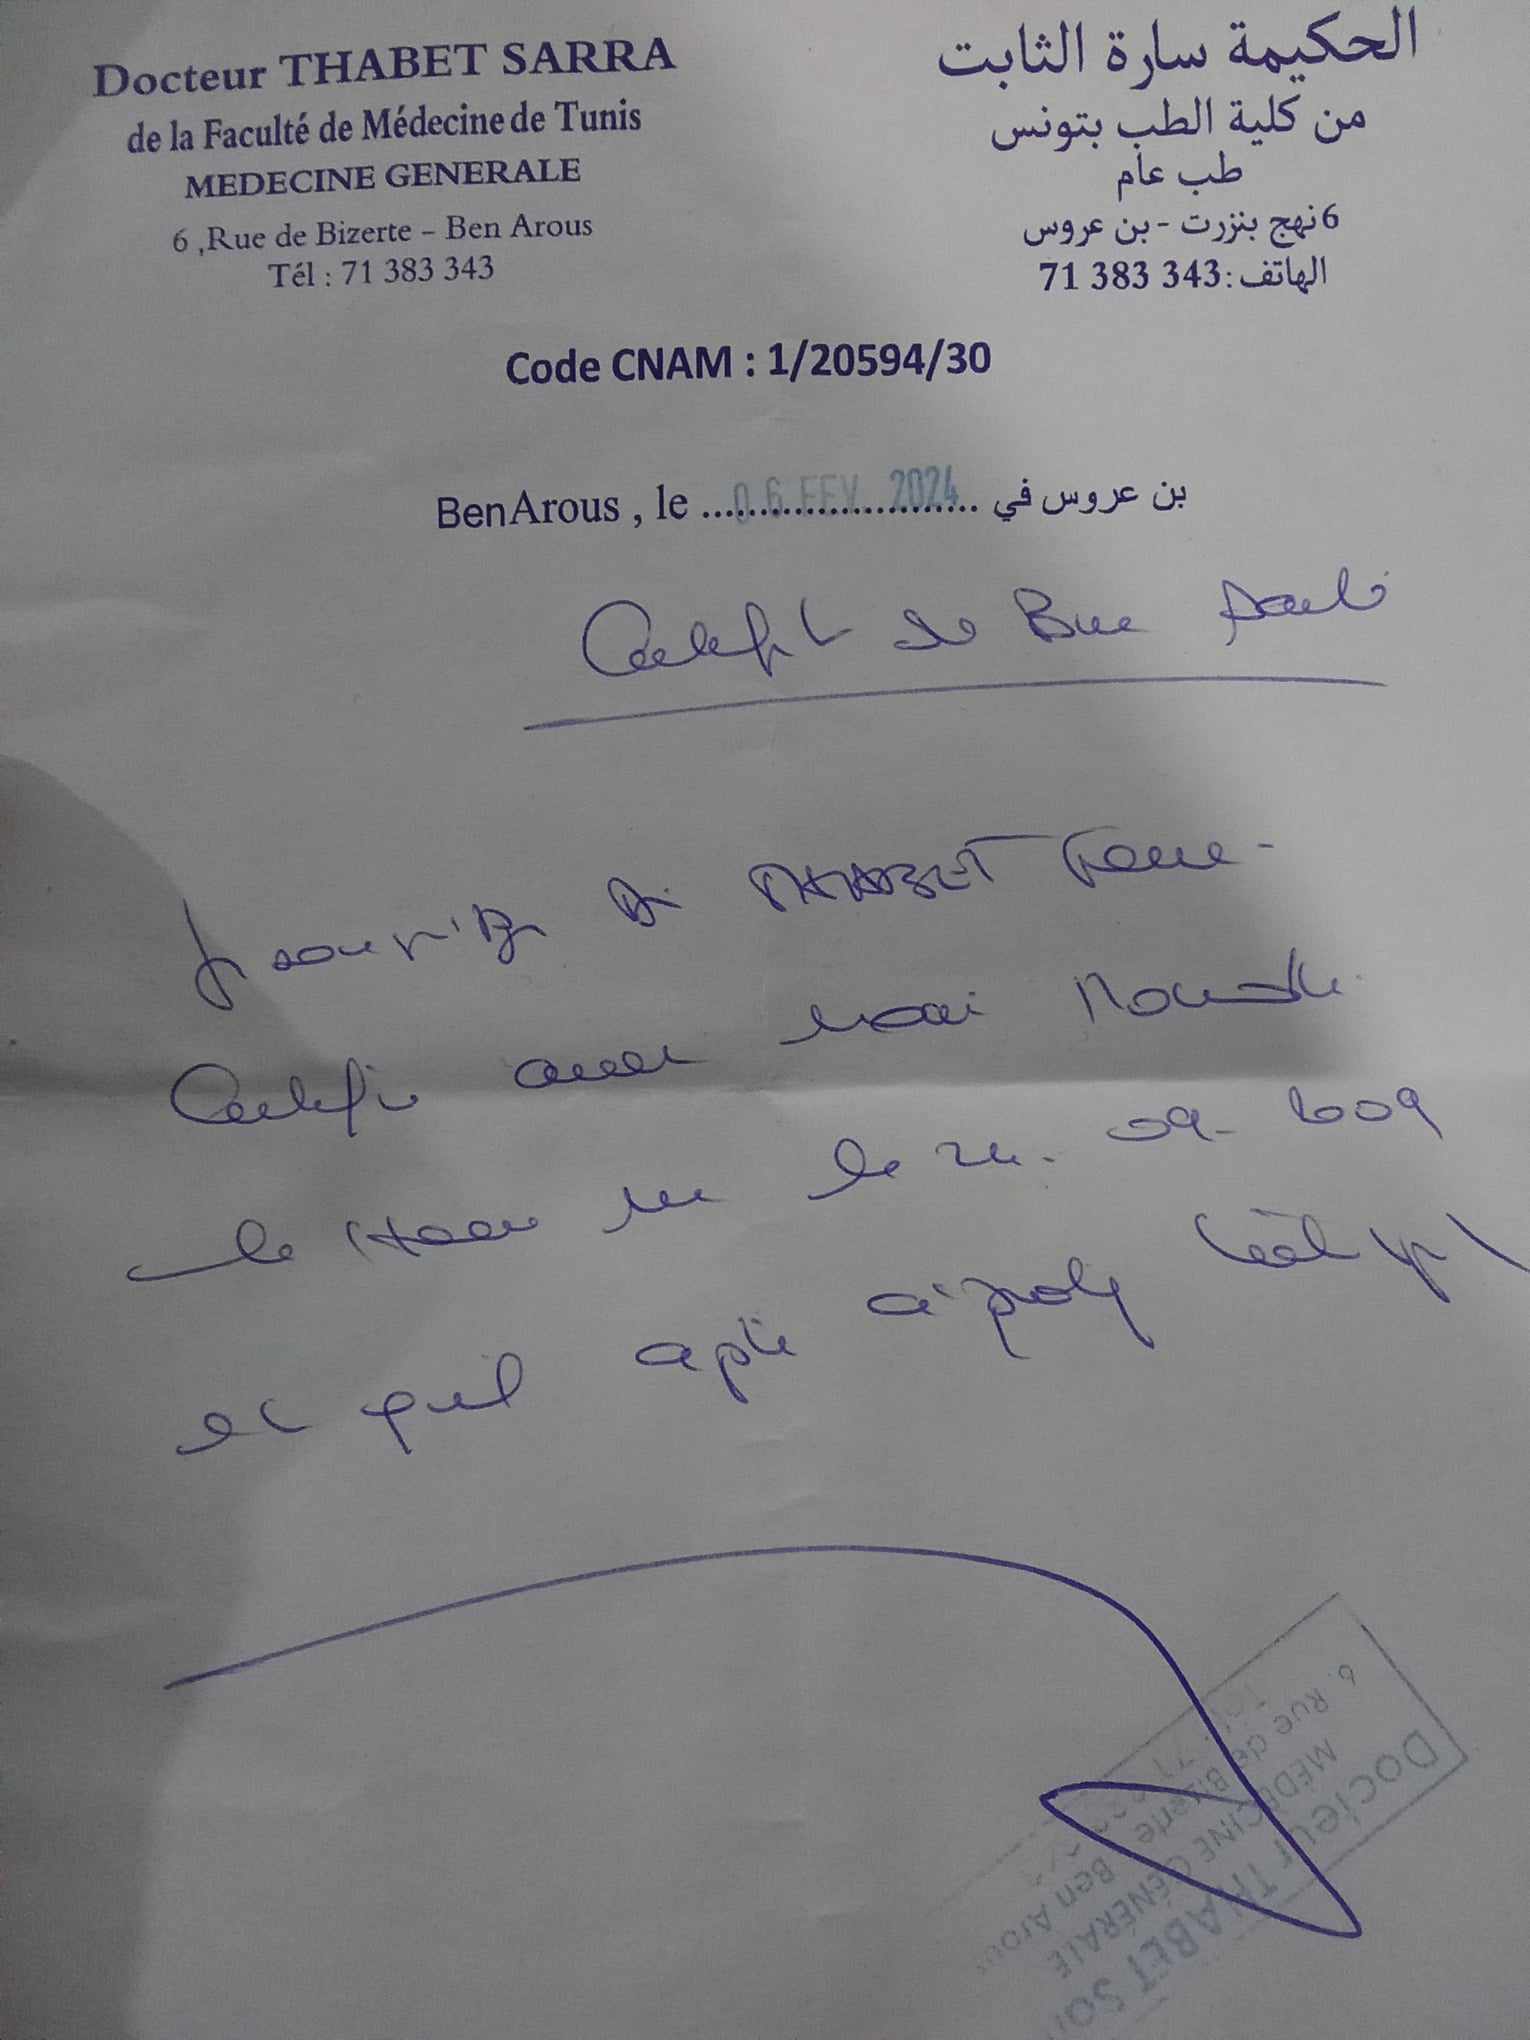 Docteur THABET SARRA
de la Faculté de Médecine de Tunis
MEDECINE GENERALE
6 ,Rue de Bizerte – Ben Arous
Tél : 71 383 343
الحكيمة سارة الثابت
من كلية الطب بتونس
طب عام
6 نهج بنزرت - بن عروس
الهاتف: 71 383 343
Code CNAM : 1/20594/30
Ben Arous , le 06 FEV. 2024 بن عروس في
Certificat de Bonne santé
Je soussigné Dr THABET
Certifie avoir
né le 24-09-2009
et qu'il apte à
Docteur THABET
MÉDECINE GÉNÉRALE
6, Rue de Bizerte Ben Arous